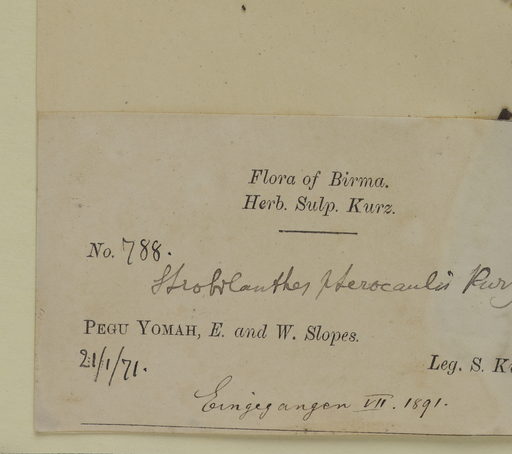 Flora of Birma.
Herb. Sulp. Kurz.
No. 788.
Strobilanthes pterocaulis Kurz
PEGU YOMAH, E. and W. Slopes.
21/1/71.
Leg. S. K
Eingegangen VII. 1891.